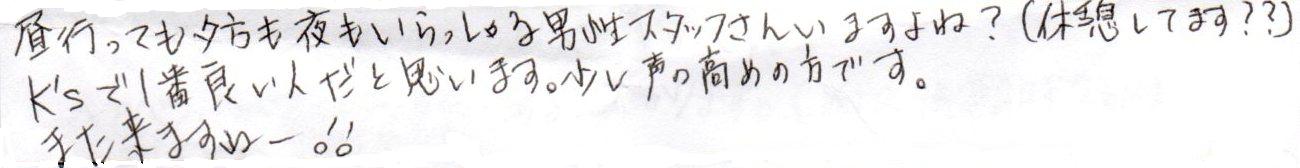 昼行っても夕方も夜もいらっしゃる男性スタッフさんいますよね?(休憩してます??)
K'sで1番良い人だと思います。少し声の高めの方です。
また来ますねー!!